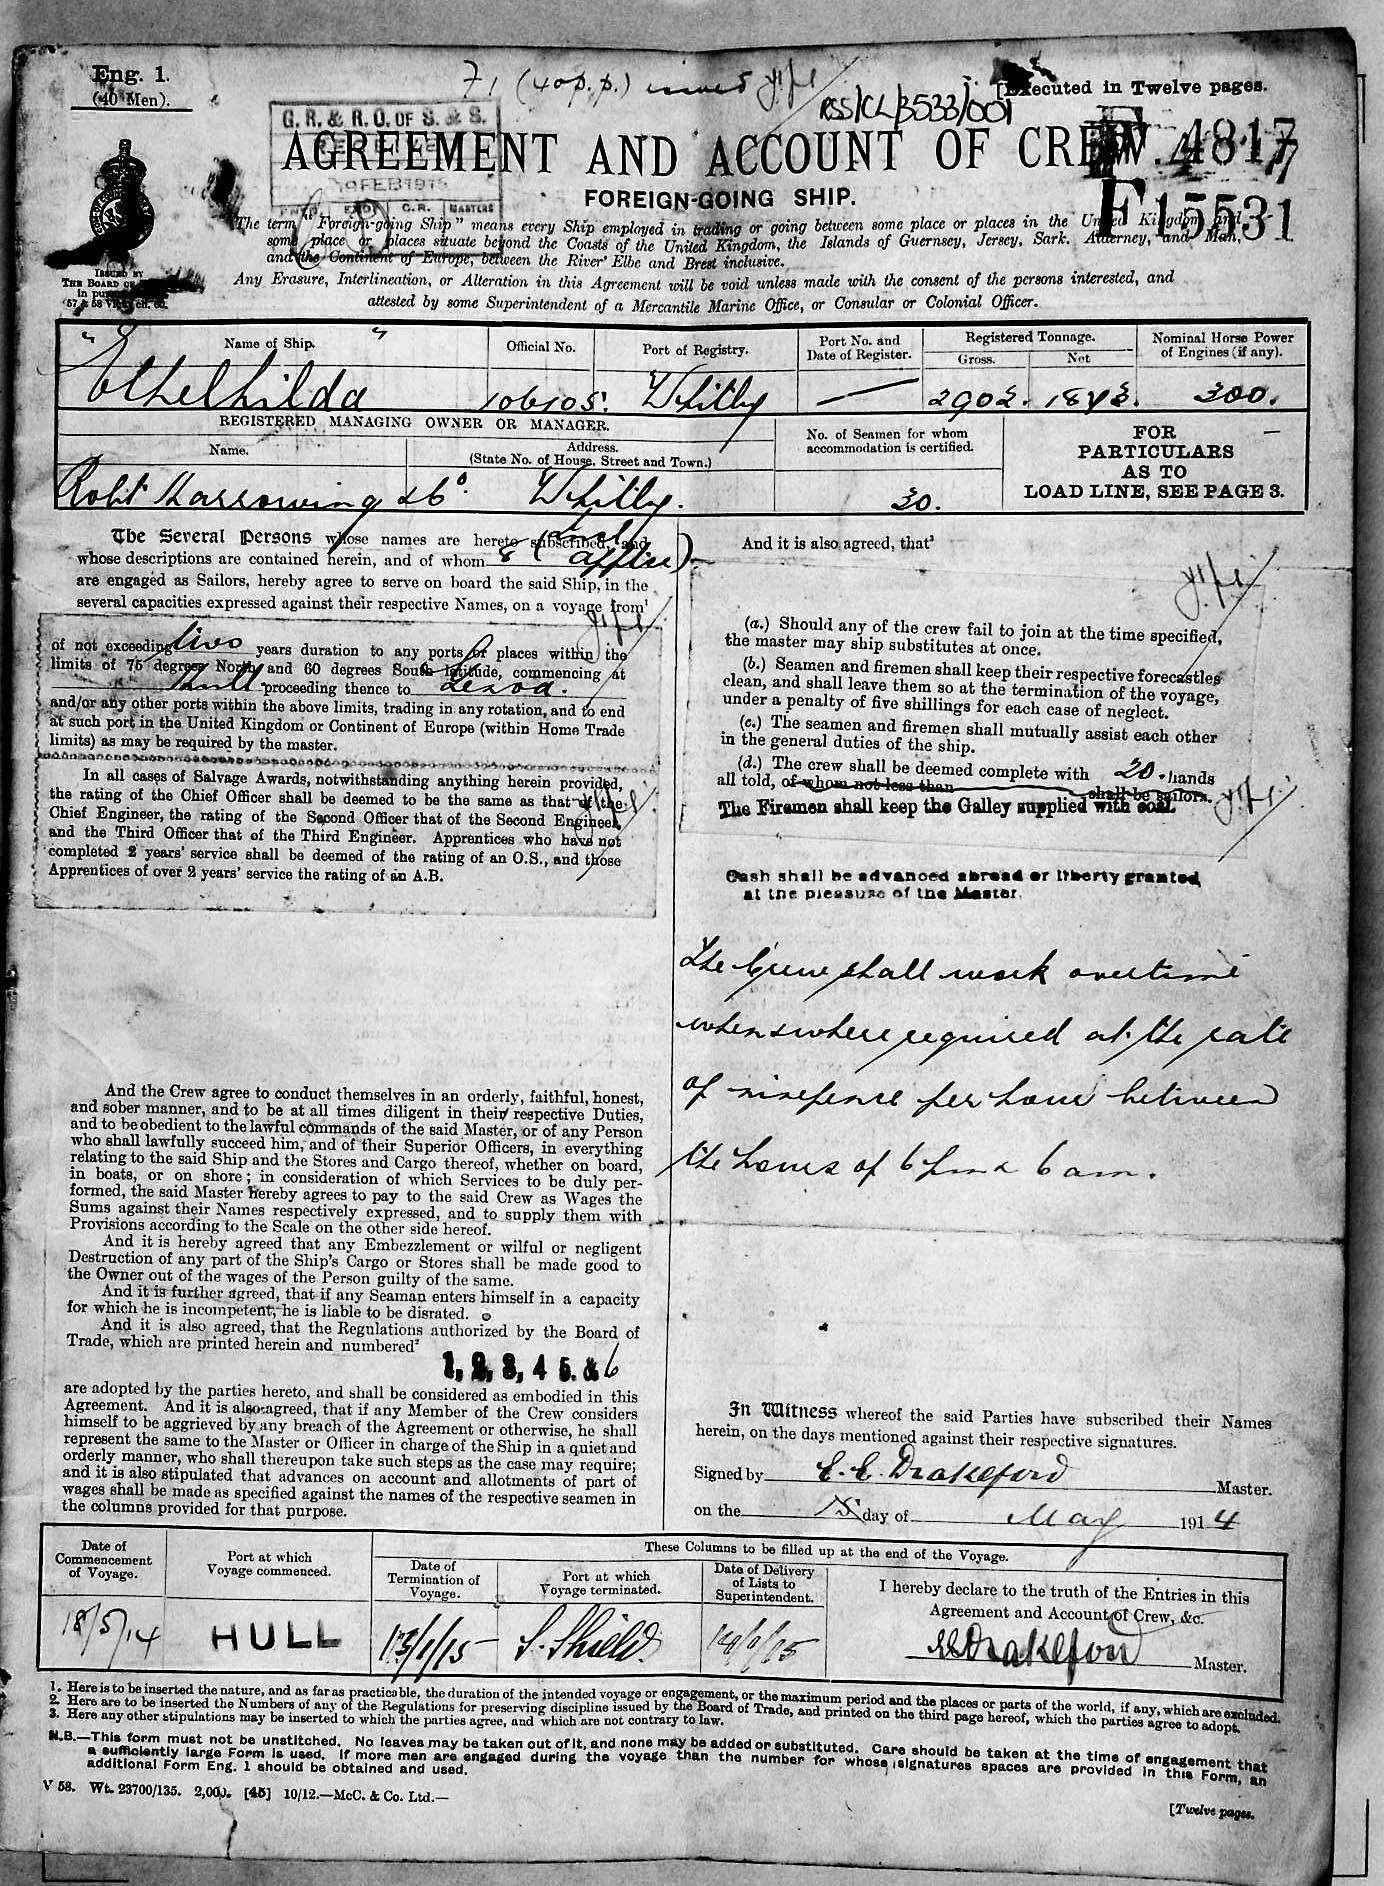 Eng. 1.
(40 Men).
71 (40 p.p.) issued
RSS/CL/3533/001
[Executed in Twelve pages.
G. R. & R. O. OF S. & S.
FEB 1915
C.R. MASTERS
AGREEMENT AND ACCOUNT OF CREW.
4817
F 15531
FOREIGN-GOING SHIP.
The term "Foreign-going Ship" means every Ship employed in trading or going between some place or places in the United Kingdom, and
some place or places situate beyond the Coasts of the United Kingdom, the Islands of Guernsey, Jersey, Sark, Alderney, and Man,
and the Continent of Europe, between the River Elbe and Brest inclusive.
Any Erasure, Interlineation, or Alteration in this Agreement will be void unless made with the consent of the persons interested, and
attested by some Superintendent of a Mercantile Marine Office, or Consular or Colonial Officer.
ISSUED BY
THE BOARD OF
in pur
57 & 58 Vict. ch. 60.
Name of Ship.
Official No.
Port of Registry.
Port No. and
Date of Register.
Registered Tonnage.
Gross. Net
Nominal Horse Power
of Engines (if any).
"Ethelhilda" 106105. Whitby — 2902. 1843. 300.
REGISTERED MANAGING OWNER OR MANAGER.
Name.
Address.
(State No. of House, Street and Town.)
No. of Seamen for whom
accommodation is certified.
FOR
PARTICULARS
AS TO
LOAD LINE, SEE PAGE 3.
Robt Harrowing & Co. Whitby. 30.
The Several Persons whose names are hereto subscribed, and
whose descriptions are contained herein, and of whom 8 (incl apptce)
are engaged as Sailors, hereby agree to serve on board the said Ship, in the
several capacities expressed against their respective Names, on a voyage from¹
of not exceeding two years duration to any ports or places within the
limits of 75 degrees North and 60 degrees South latitude, commencing at
Hull proceeding thence to
and/or any other ports within the above limits, trading in any rotation, and to end
at such port in the United Kingdom or Continent of Europe (within Home Trade
limits) as may be required by the master.
In all cases of Salvage Awards, notwithstanding anything herein provided,
the rating of the Chief Officer shall be deemed to be the same as that of the
Chief Engineer, the rating of the Second Officer that of the Second Engineer,
and the Third Officer that of the Third Engineer. Apprentices who have not
completed 2 years' service shall be deemed of the rating of an O.S., and those
Apprentices of over 2 years' service the rating of an A.B.
And the Crew agree to conduct themselves in an orderly, faithful, honest,
and sober manner, and to be at all times diligent in their respective Duties,
and to be obedient to the lawful commands of the said Master, or of any Person
who shall lawfully succeed him, and of their Superior Officers, in everything
relating to the said Ship and the Stores and Cargo thereof, whether on board,
in boats, or on shore; in consideration of which Services to be duly per-
formed, the said Master hereby agrees to pay to the said Crew as Wages the
Sums against their Names respectively expressed, and to supply them with
Provisions according to the Scale on the other side hereof.
And it is hereby agreed that any Embezzlement or wilful or negligent
Destruction of any part of the Ship's Cargo or Stores shall be made good to
the Owner out of the wages of the Person guilty of the same.
And it is further agreed, that if any Seaman enters himself in a capacity
for which he is incompetent, he is liable to be disrated.
And it is also agreed, that the Regulations authorized by the Board of
Trade, which are printed herein and numbered²
1, 2, 3, 4 5. & 6
are adopted by the parties hereto, and shall be considered as embodied in this
Agreement. And it is also agreed, that if any Member of the Crew considers
himself to be aggrieved by any breach of the Agreement or otherwise, he shall
represent the same to the Master or Officer in charge of the Ship in a quiet and
orderly manner, who shall thereupon take such steps as the case may require;
and it is also stipulated that advances on account and allotments of part of
wages shall be made as specified against the names of the respective seamen in
the columns provided for that purpose.
And it is also agreed, that³
(a.) Should any of the crew fail to join at the time specified,
the master may ship substitutes at once.
(b.) Seamen and firemen shall keep their respective forecastles
clean, and shall leave them so at the termination of the voyage,
under a penalty of five shillings for each case of neglect.
(c.) The seamen and firemen shall mutually assist each other
in the general duties of the ship.
(d.) The crew shall be deemed complete with 20 hands
all told, of whom not less than shall be sailors.
The Firemen shall keep the Galley supplied with coal.
Cash shall be advanced abroad or liberty granted
at the pleasure of the Master.
The Crew shall work overtime
when & where required at the rate
of ninepence per hour between
the hours of 6 pm & 6 am.
In Witness whereof the said Parties have subscribed their Names
herein, on the days mentioned against their respective signatures.
Signed by E. E. Drakeford Master.
on the 15 day of May 1914
Date of
Commencement
of Voyage.
Port at which
Voyage commenced.
These Columns to be filled up at the end of the Voyage.
Date of
Termination of
Voyage.
Port at which
Voyage terminated.
Date of Delivery
of Lists to
Superintendent.
I hereby declare to the truth of the Entries in this
Agreement and Account of Crew, &c.
18/5/14 HULL 13/1/15 S. Shields
EEDrakeford Master.
1. Here is to be inserted the nature, and as far as practicable, the duration of the intended voyage or engagement, or the maximum period and the places or parts of the world, if any, which are excluded.
2. Here are to be inserted the Numbers of any of the Regulations for preserving discipline issued by the Board of Trade, and printed on the third page hereof, which the parties agree to adopt.
3. Here any other stipulations may be inserted to which the parties agree, and which are not contrary to law.
N.B.—This form must not be unstitched. No leaves may be taken out of it, and none may be added or substituted. Care should be taken at the time of engagement that
a sufficiently large Form is used. If more men are engaged during the voyage than the number for whose signatures spaces are provided in this Form, an
additional Form Eng. 1 should be obtained and used.
V 58. Wt. 23700/135. 2,000. [45] 10/12.—McC. & Co. Ltd.—
[Twelve pages.